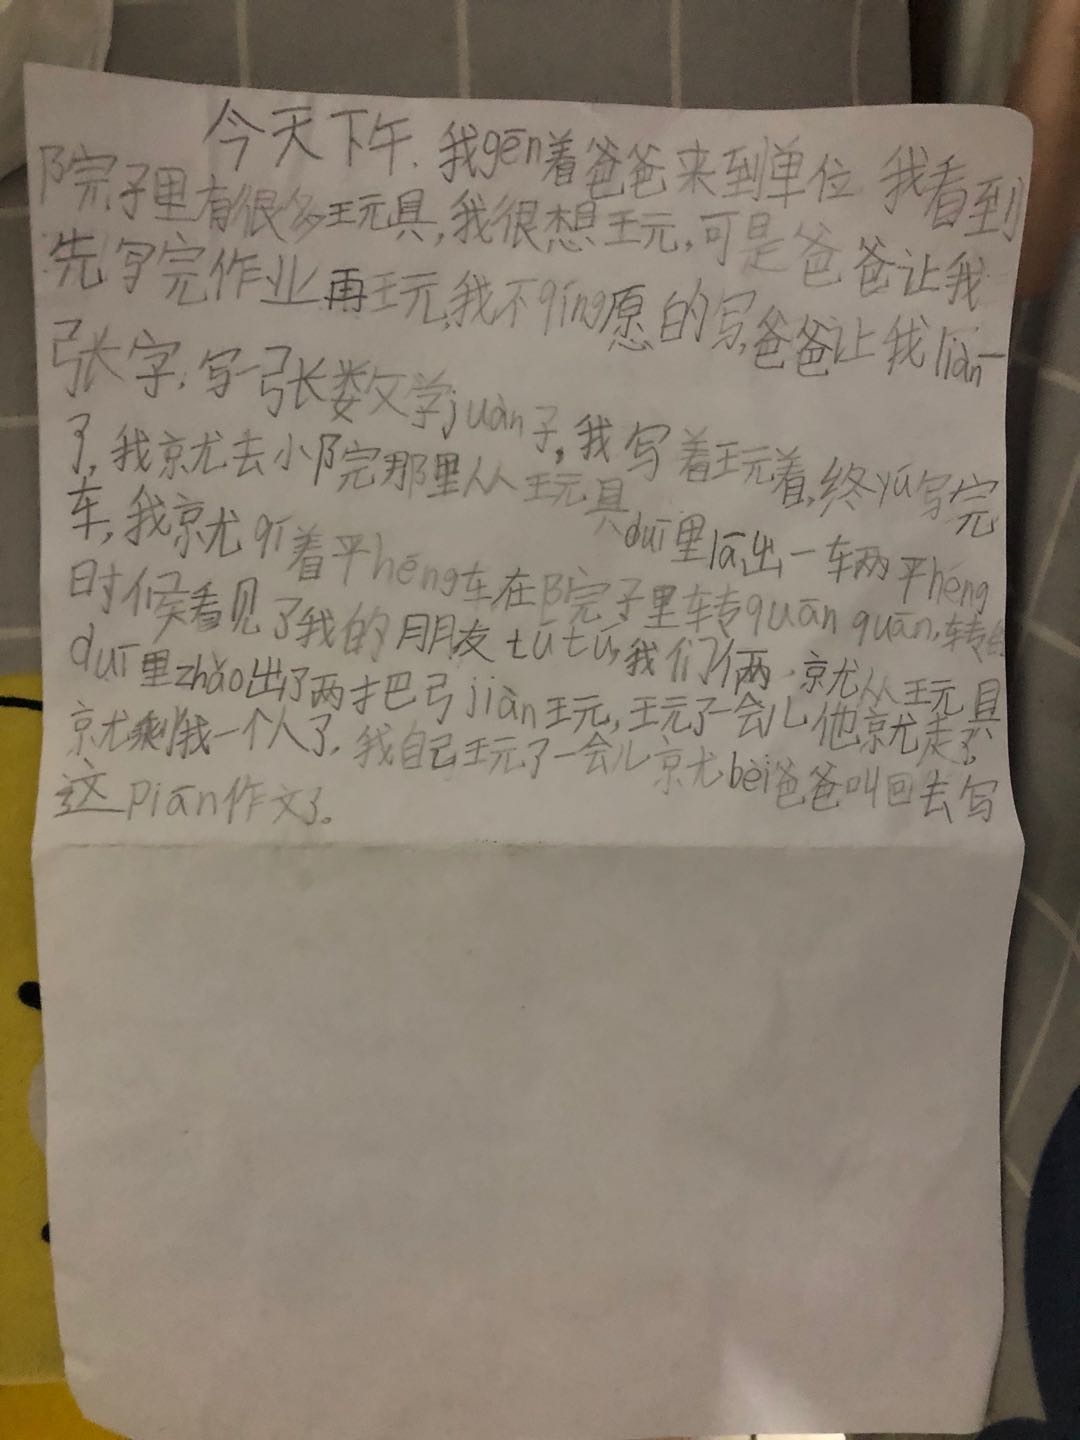 今天下午,我gēn着爸爸来到单位 我看到
院子里有很多玩具,我很想玩,可是爸爸让我
先写完作业再玩,我不qíng愿的写,爸爸让我liàn一
张字,写一张数学juàn子,我写着玩着,终yú写完
了,我就去小院那里从玩具duī里lā出一车两平héng
车,我就qí着平héng车在院子里转quān quān,转的
时候看见了我的朋友tú tú,我们俩就从玩具
duī里zhǎo出了两把弓jiàn玩,玩了一会儿他就走了,
就剩我一个人了,我自己玩了一会儿就bèi爸爸叫回去写
这piān作文了。